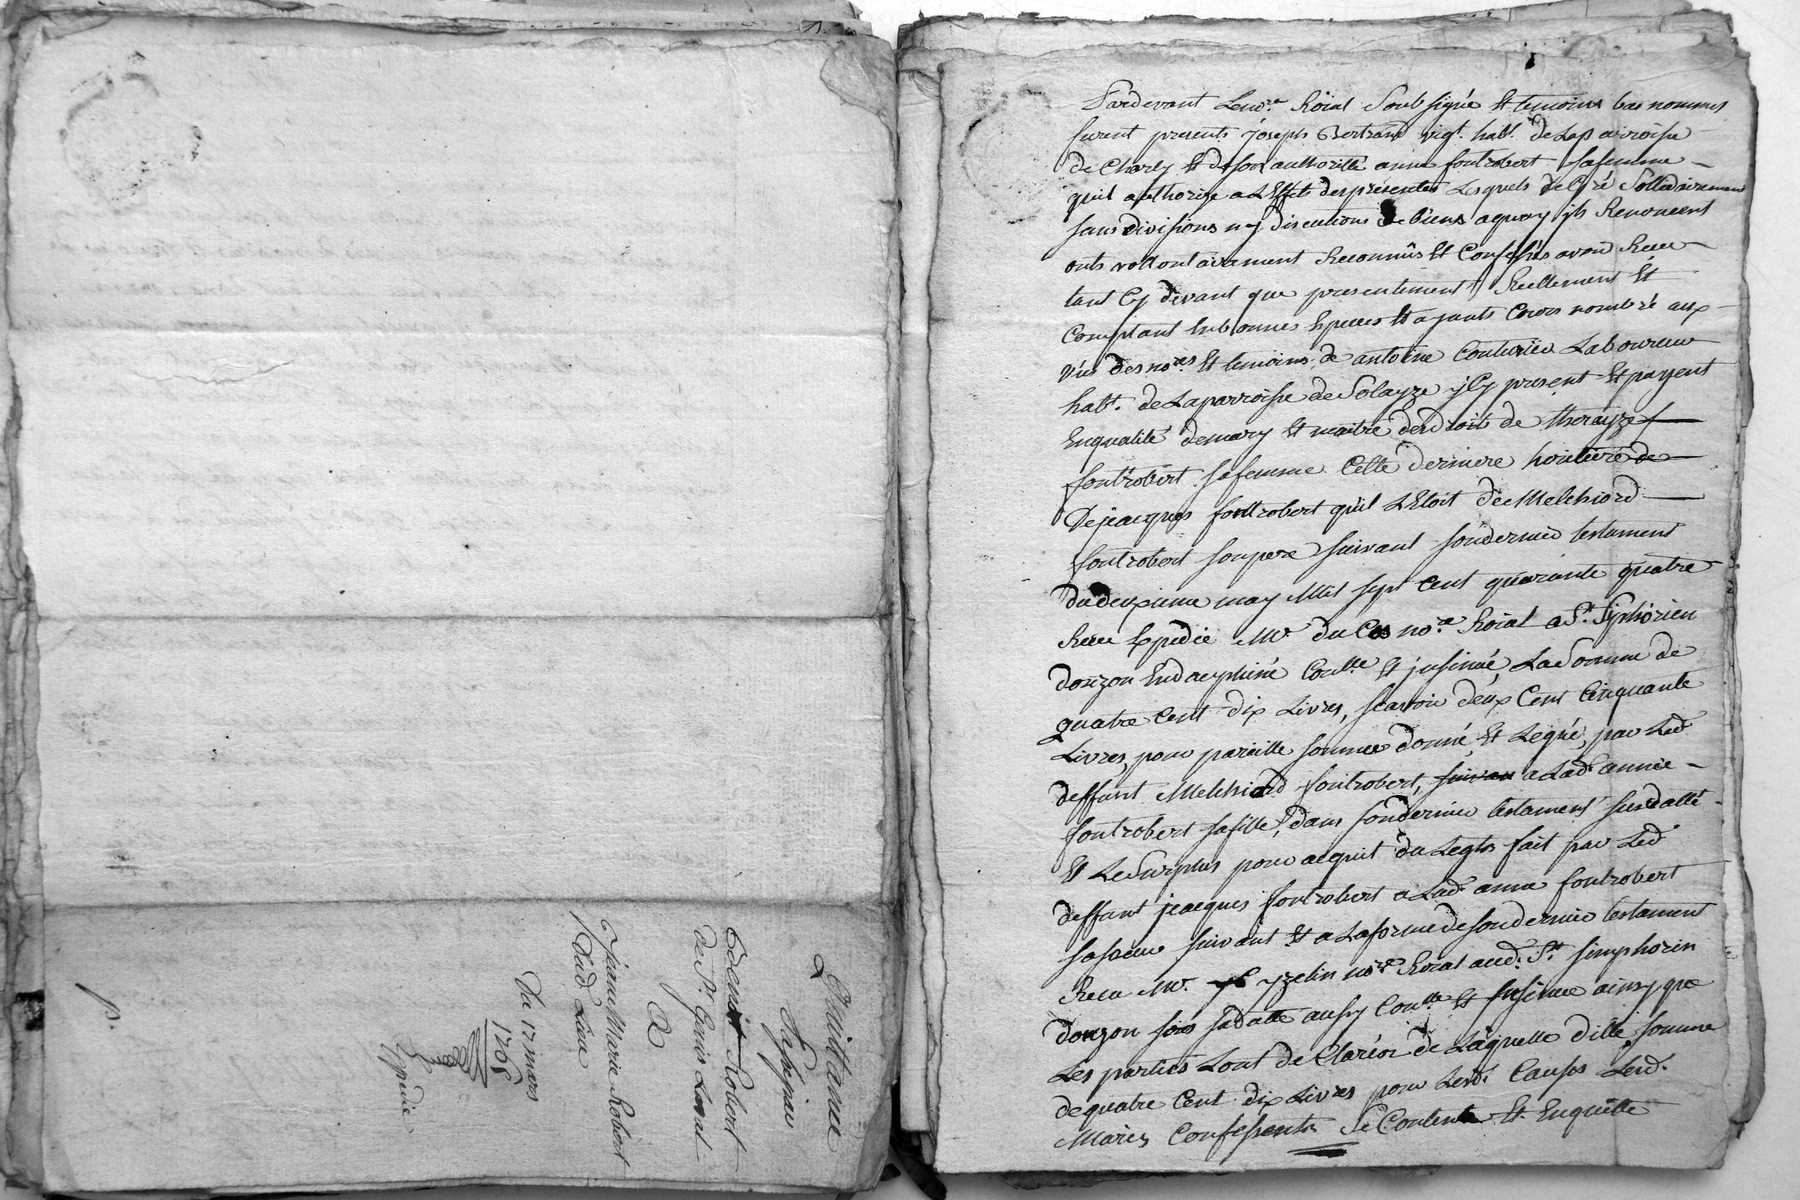 Quittance
passé par
Benoit Robert
de St. Genis Laval
A
Jeanne Marie Robert
dud. Lieu
Du 17 mars
1768
Expédié
p.
Pardevant Le no.re Roïal Soubsigné Et temoins bas nommes
furent presents Joseph Bertrand vigt. habt. de La parroisse
de Charly Et de son authorité anne fontrobert sa femme
quil authorize a L'Effet des présentes Lesquels de Gré Sollidairement
sans divisions ny discutions de biens a quoy ils Renoncent
onts vollontairement Reconnûs Et Confessés avoir Receu
tant Cy devant que presentement Reellement Et
Comptant En bonnes Especes Et ayants Cours nombré aux
vües des no.res Et temoins, de antoine Couturier Laboureur
habt. de La parroisse de Solayze y Cy present Et payent
En qualité de mary Et maitre des droits de therayze
fontrobert sa femme Cette derniere heritiere de
De jeacques fontrobert quil L'Etoit de Melchiord
fontrobert son pere suivant son dernier testament
du deuxieme may Mil sept Cent quarante quatre
Receu Expedié Mr. du Cos no.re Roïal a St. Siphorien
d'ouzon En dauphiné Con.llé Et insinué, La Somme de
quatre Cent dix Livres, scavoir deux Cent Cinquante
Livres, pour pareille somme donné, Et Legué, par Led
deffunt Melchiord fontrobert, suivan a Lad. anne
fontrobert sa fille, dans son dernier testament susdatté
Et Le Surplus pour acquit du Legts fait par Led
deffunt jeacques fontrobert a Lad. anne fontrobert
sa soeur suivant Et a La forme de son dernier testament
Receu Mr. yzelin no.re Roïal aud. St. Simphorien
d'ouzon sous sa datte aussy Con.llé Et insinué ainsy que
Les parties L'ont de Claréé de Laquelle ditte somme
de quatre Cent dix Livres pour Lesd. Causes Lesd.
Mariés Confessents Se Contente Et En quitte